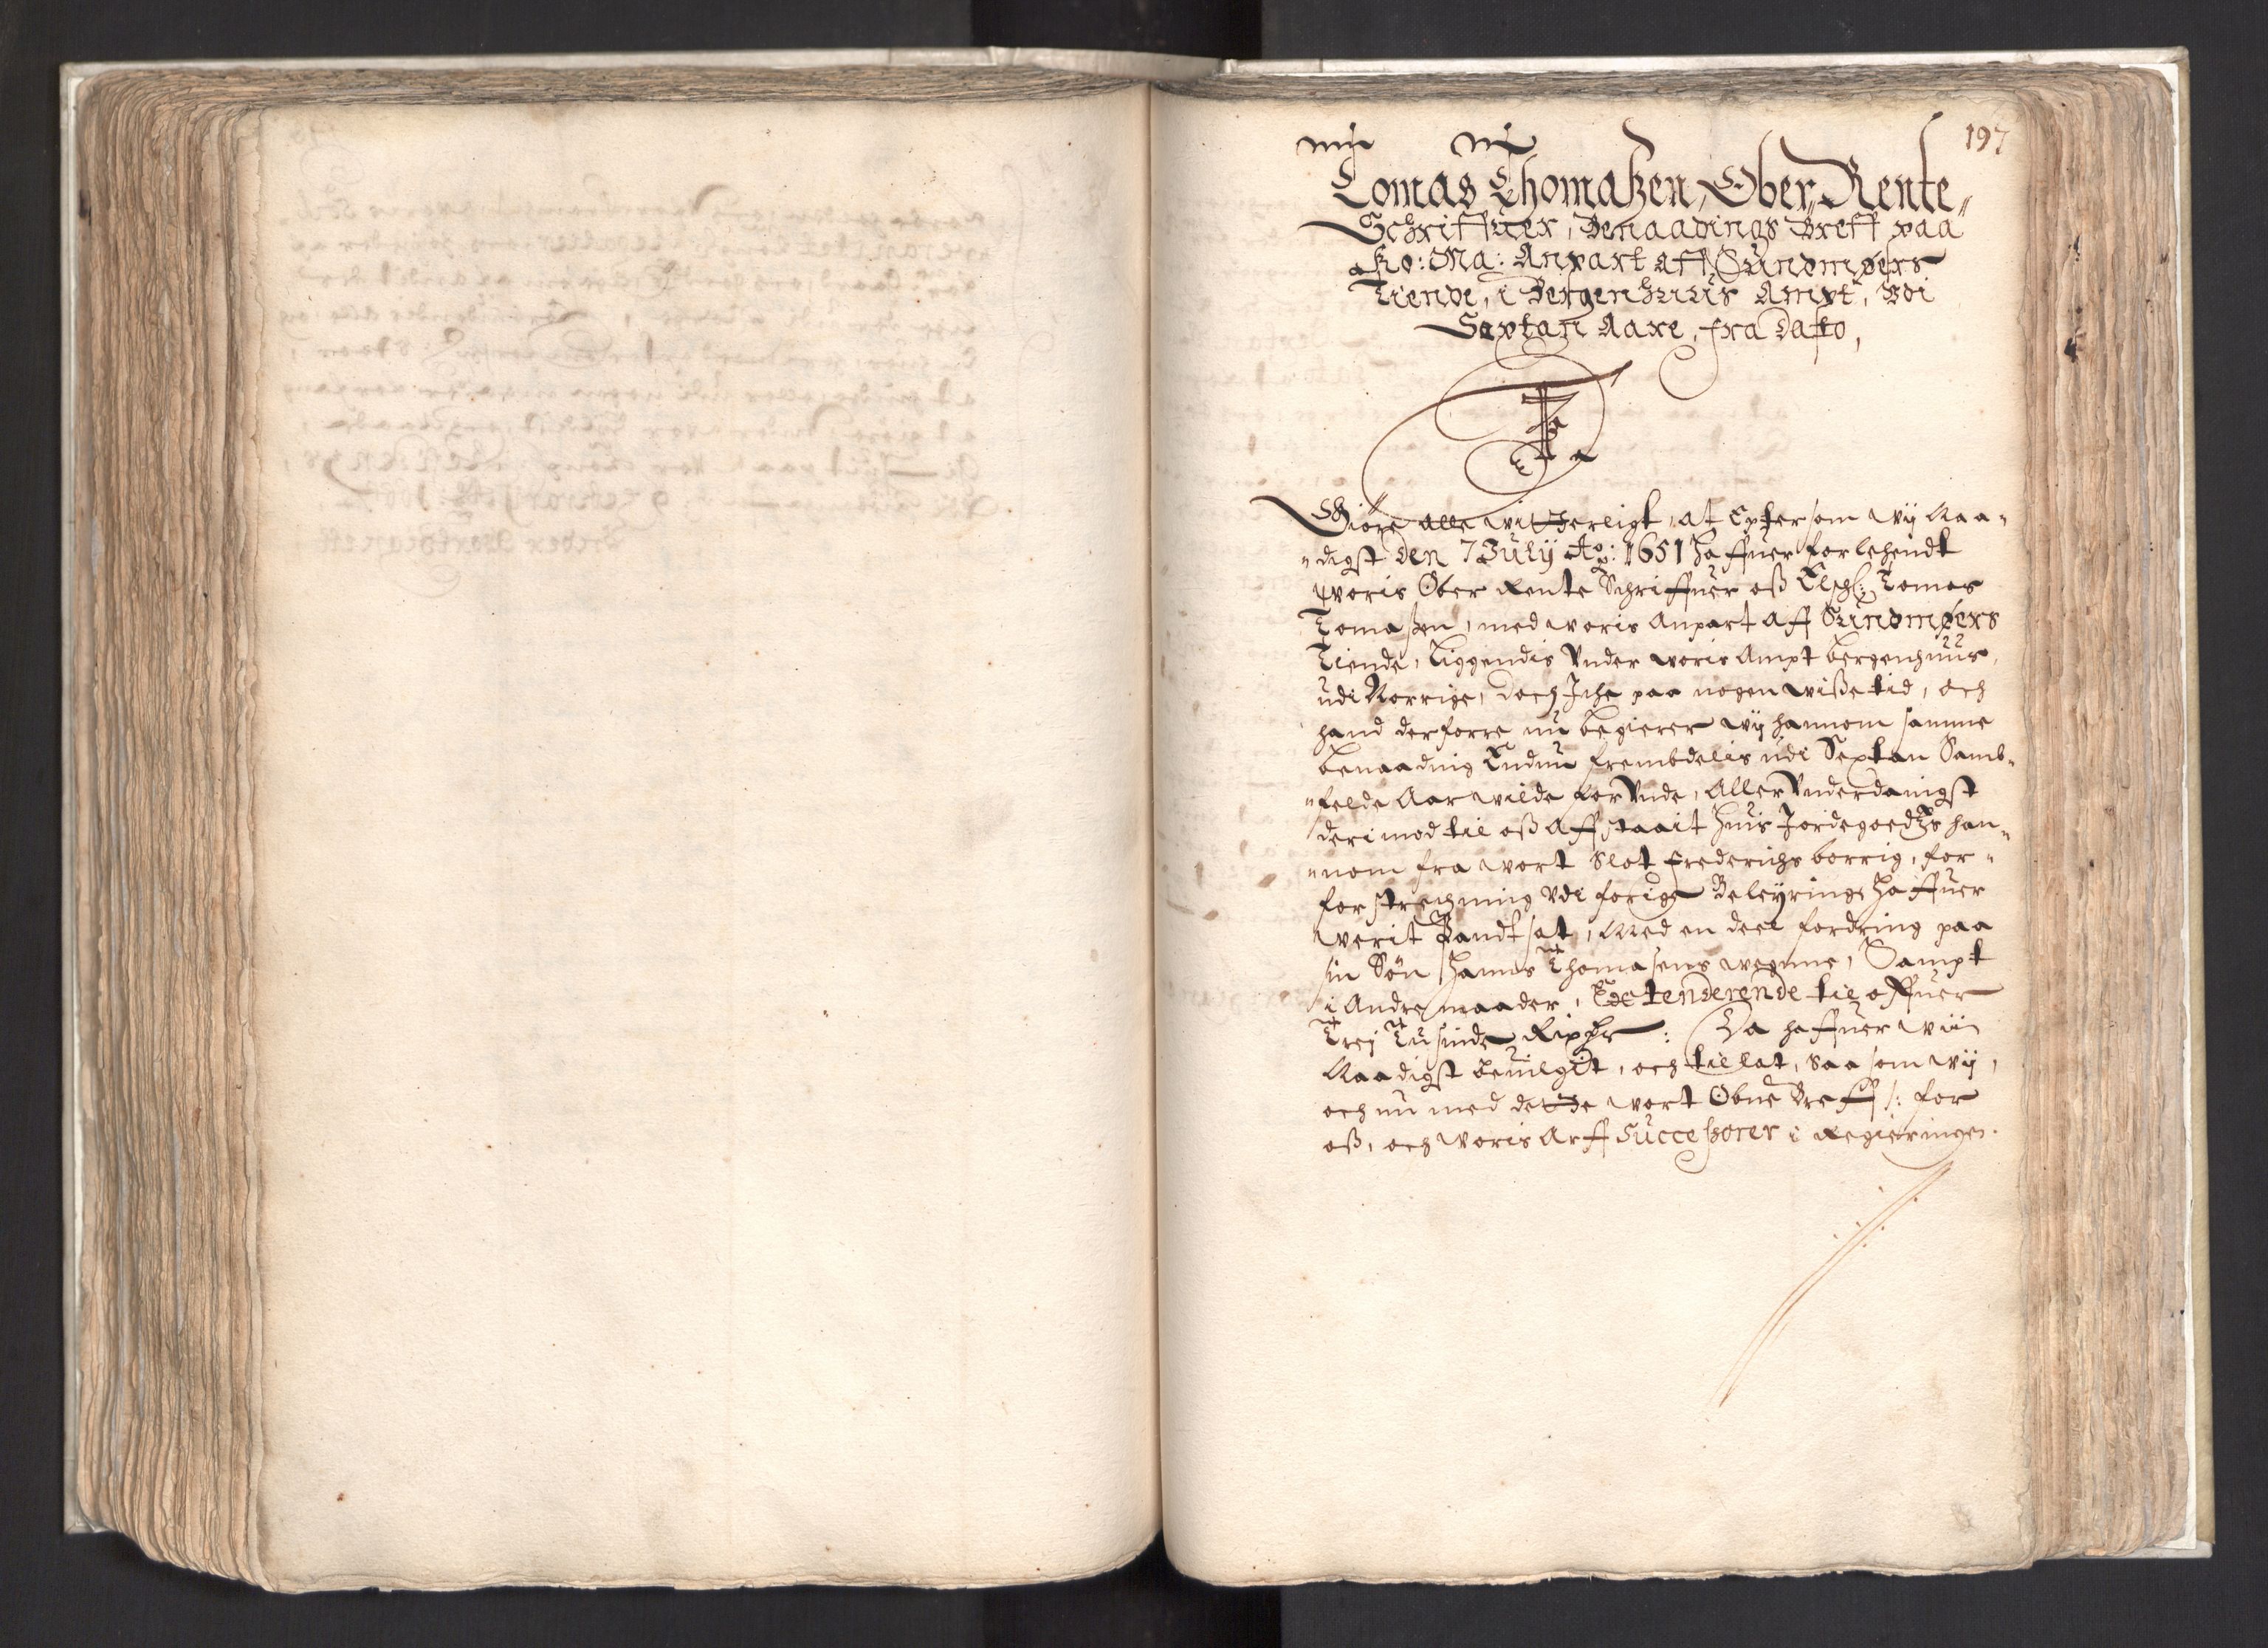 197
Tomas Thomaßen, Ober, Rente,,
Schriffuer, Benaadings Breff paa
Ko: Ma: Anpart aff Sundmøers
Tiende, i Bergenhuus Ampt, Vdi
Sextan Aare, fra Dato,
Giøre alle witterligt, at Epftersom wij Naa,,
,,digst Den 7 Julij Ao: 1651 haffuer forlehendt
woris Ober Rente Schriffuer oß Elschl: Tomas
Tomaßen, med woris Anpart Aff Sundmøers
Tiende, Liggendis Vnder woris Ampt Bergenhuus,
udi Norrige, doch Iche paa nogen wiße tid, och
hand derforre nu begierer wij hannom samme
benaading Endnu frembdelis udi Sextan Samb,,
,,felde Aar wilde forVnde, AllerVnderdanigst
derimod til oß Affstaait huis Jordegoedtz han,,
,,nom fra wort Slot Frederichsborrig, for,,
forstrechning Vdi forige Beleyring haffuer
werit Pandtsat, Med en deel fordring paa
sin Søn Hannes Thomasens wegnne, Sampt
i Andre maader, tenderende til offuer
Trej Tusinde Rixdr: Da haffuer wii
Naadigst beuilget, och tillat, saa som wij,
och nu med dette wort Obne Breff /: for
oß, och woris Arff Succeßorer i Regieringen.